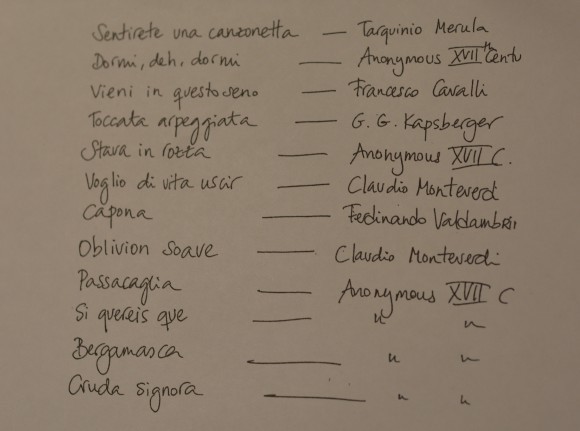 Sentirete una canzonetta — Tarquinio Merula
Dormi, deh, dormi — Anonymous XVIIth Centu
Vieni in questo seno — Francesco Cavalli
Toccata arpeggiata — G. G. Kapsberger
Stava in rozza — Anonymous XVII C.
Voglio di vita uscir — Claudio Monteverdi
Capona — Ferdinando Valdambrini
Oblivion soave — Claudio Monteverdi
Passacaglia — Anonymous XVII C
Si quereis que — " "
Bergamasca — " "
Cruda signora — " "